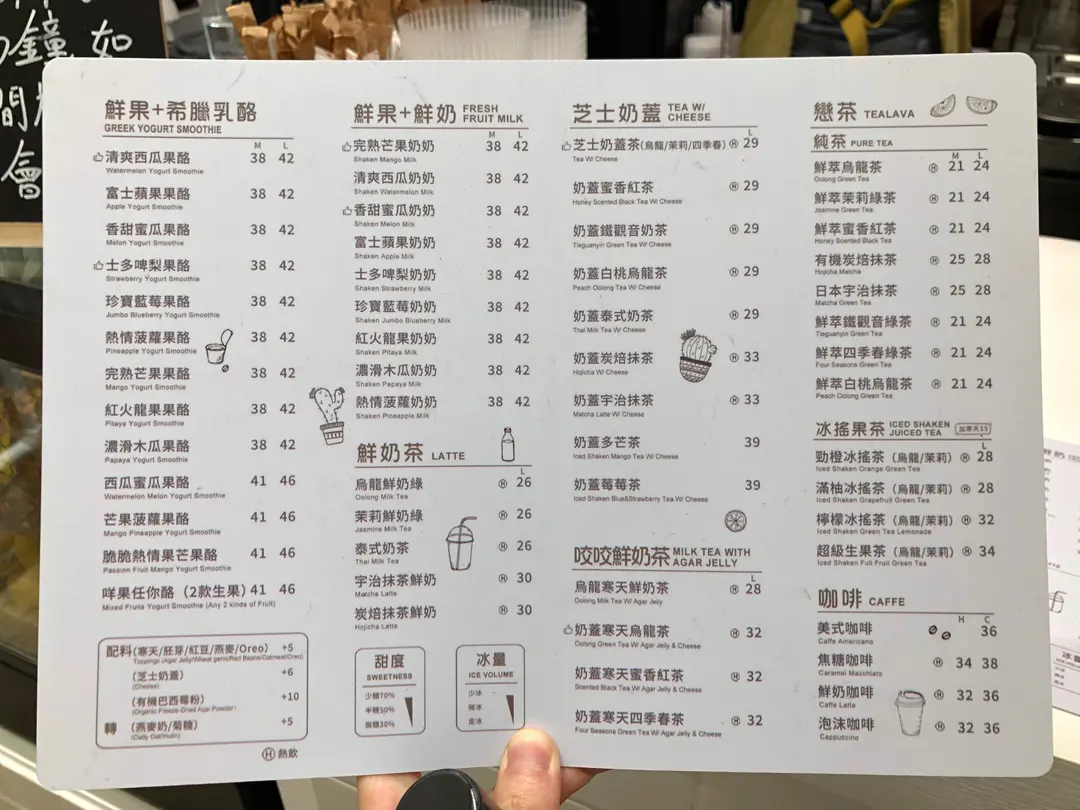 鐘 如
間
會
鮮果+希臘乳酪
GREEK YOGURT SMOOTHIE
M L
清爽西瓜果酪 38 42
Watermelon Yogurt Smoothie
富士蘋果果酪 38 42
Apple Yogurt Smoothie
香甜蜜瓜果酪 38 42
Melon Yogurt Smoothie
士多啤梨果酪 38 42
Strawberry Yogurt Smoothie
珍寶藍莓果酪 38 42
Jumbo Blueberry Yogurt Smoothie
熱情菠蘿果酪 38 42
Pineapple Yogurt Smoothie
完熟芒果果酪 38 42
Mango Yogurt Smoothie
紅火龍果果酪 38 42
Pitaya Yogurt Smoothie
濃滑木瓜果酪 38 42
Papaya Yogurt Smoothie
西瓜蜜瓜果酪 41 46
Watermelon Melon Yogurt Smoothie
芒果菠蘿果酪 41 46
Mango Pineapple Yogurt Smoothie
脆脆熱情果芒果酪 41 46
Passion Fruit Mango Yogurt Smoothie
咩果任你酪（2款生果） 41 46
Mixed Fruits Yogurt Smoothie (Any 2 kinds of Fruit)
配料（寒天/胚芽/紅豆/燕麥/Oreo） +5
Toppings (Agar Jelly/Wheat germs/Red Beans/Oatmeal/Oreo)
（芝士奶蓋） +6
(Cheese)
（有機巴西莓粉） +10
(Organic Freeze-Dried Agai Powder)
轉（燕麥奶/菊糖） +5
(Oatly Oat/Inulin)
Ⓗ 熱飲
鮮果+鮮奶 FRESH FRUIT MILK
M L
完熟芒果奶奶 38 42
Shaken Mango Milk
清爽西瓜奶奶 38 42
Shaken Watermelon Milk
香甜蜜瓜奶奶 38 42
Shaken Melon Milk
富士蘋果奶奶 38 42
Shaken Apple Milk
士多啤梨奶奶 38 42
Shaken Strawberry Milk
珍寶藍莓奶奶 38 42
Shaken Jumbo Blueberry Milk
紅火龍果奶奶 38 42
Shaken Pitaya Milk
濃滑木瓜奶奶 38 42
Shaken Papaya Milk
熱情菠蘿奶奶 38 42
Shaken Pineapple Milk
鮮奶茶 LATTE
L
烏龍鮮奶綠 Ⓗ 26
Oolong Milk Tea
茉莉鮮奶綠 Ⓗ 26
Jasmine Milk Tea
泰式奶茶 Ⓗ 26
Thai Milk Tea
宇治抹茶鮮奶 Ⓗ 30
Matcha Latte
炭焙抹茶鮮奶 Ⓗ 30
Hojicha Latte
甜度
SWEETNESS
少糖70%
半糖50%
微糖30%
冰量
ICE VOLUME
少冰
微冰
走冰
芝士奶蓋 TEA W/ CHEESE
L
芝士奶蓋茶(烏龍/茉莉/四季春) Ⓗ 29
Tea W/ Cheese
奶蓋蜜香紅茶 Ⓗ 29
Honey Scented Black Tea W/ Cheese
奶蓋鐵觀音奶茶 Ⓗ 29
Tieguanyin Green Tea W/ Cheese
奶蓋白桃烏龍茶 Ⓗ 29
Peach Oolong Tea W/ Cheese
奶蓋泰式奶茶 Ⓗ 29
Thai Milk Tea W/ Cheese
奶蓋炭焙抹茶 Ⓗ 33
Hojicha W/ Cheese
奶蓋宇治抹茶 Ⓗ 33
Matcha Latte W/ Cheese
奶蓋多芒茶 39
Iced Shaken Mango Tea W/ Cheese
奶蓋莓莓茶 39
Iced Shaken Blue&Strawberry Tea W/ Cheese
咬咬鮮奶茶 MILK TEA WITH AGAR JELLY
L
烏龍寒天鮮奶茶 Ⓗ 28
Oolong Milk Tea W/ Agar Jelly
奶蓋寒天烏龍茶 Ⓗ 32
Oolong Green Tea W/ Agar Jelly & Cheese
奶蓋寒天蜜香紅茶 Ⓗ 32
Scented Black Tea W/ Agar Jelly & Cheese
奶蓋寒天四季春茶 Ⓗ 32
Four Seasons Green Tea W/ Agar Jelly & Cheese
戀茶 TEALAVA
純茶 PURE TEA
M L
鮮萃烏龍茶 Ⓗ 21 24
Oolong Green Tea
鮮萃茉莉綠茶 Ⓗ 21 24
Jasmine Green Tea
鮮萃蜜香紅茶 Ⓗ 21 24
Honey Scented Black Tea
有機炭焙抹茶 Ⓗ 25 28
Hojicha Matcha
日本宇治抹茶 Ⓗ 25 28
Matcha Green Tea
鮮萃鐵觀音綠茶 Ⓗ 21 24
Tieguanyin Green Tea
鮮萃四季春綠茶 Ⓗ 21 24
Four Seasons Green Tea
鮮萃白桃烏龍茶 Ⓗ 21 24
Peach Oolong Green Tea
冰搖果茶 ICED SHAKEN JUICED TEA 加寒天$5
L
勁橙冰搖茶（烏龍/茉莉） Ⓗ 28
Iced Shaken Orange Green Tea
滿柚冰搖茶（烏龍/茉莉） Ⓗ 28
Iced Shaken Grapefruit Green Tea
檸檬冰搖茶（烏龍/茉莉） Ⓗ 32
Iced Shaken Green Tea Lemonade
超級生果茶（烏龍/茉莉） Ⓗ 34
Iced Shaken Full Fruit Green Tea
咖啡 CAFFE
H C
美式咖啡 36
Caffe Americano
焦糖咖啡 Ⓗ 34 38
Caramel Macchiato
鮮奶咖啡 Ⓗ 32 36
Caffe Latte
泡沫咖啡 Ⓗ 32 36
Cappuccino